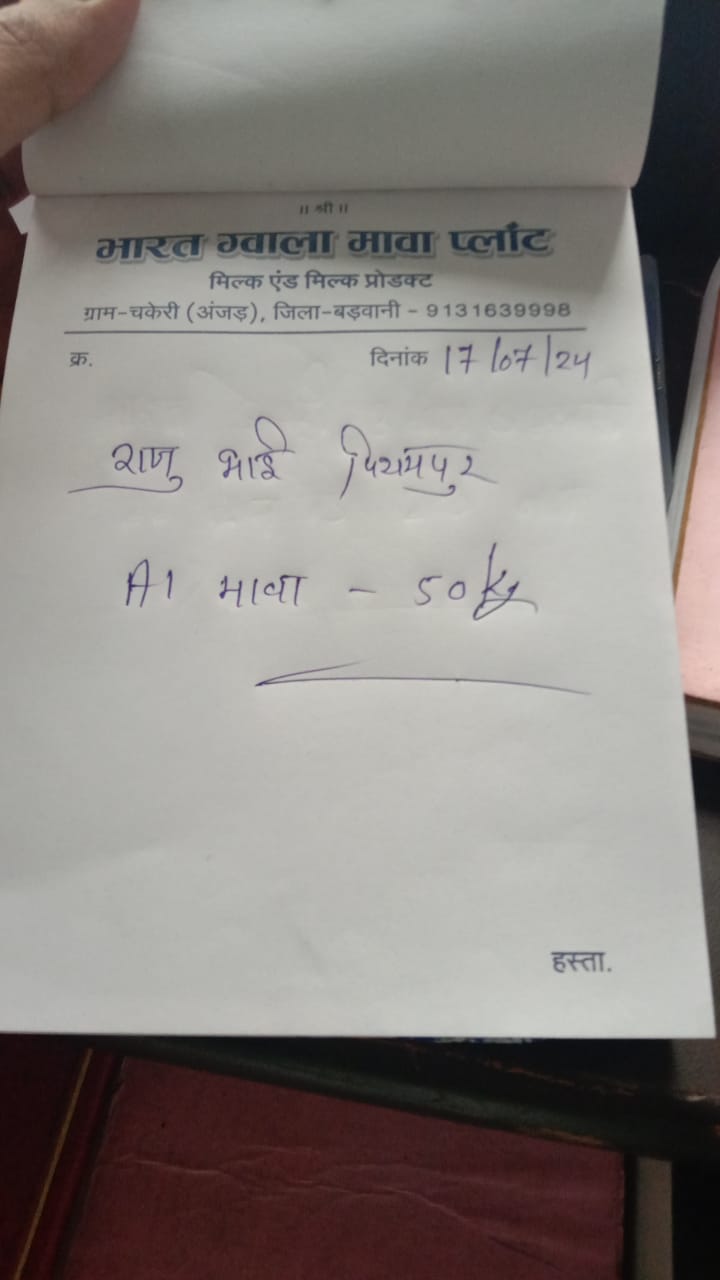 ॥ श्री ॥
भारत ग्वाला मावा प्लाँट
मिल्क एंड मिल्क प्रोडक्ट
ग्राम-चकेरी (अंजड़), जिला-बड़वानी - 9131639998
क्र. दिनांक 17/07/24
राजु भाई
A1 मावा - 50 kg
हस्ता.